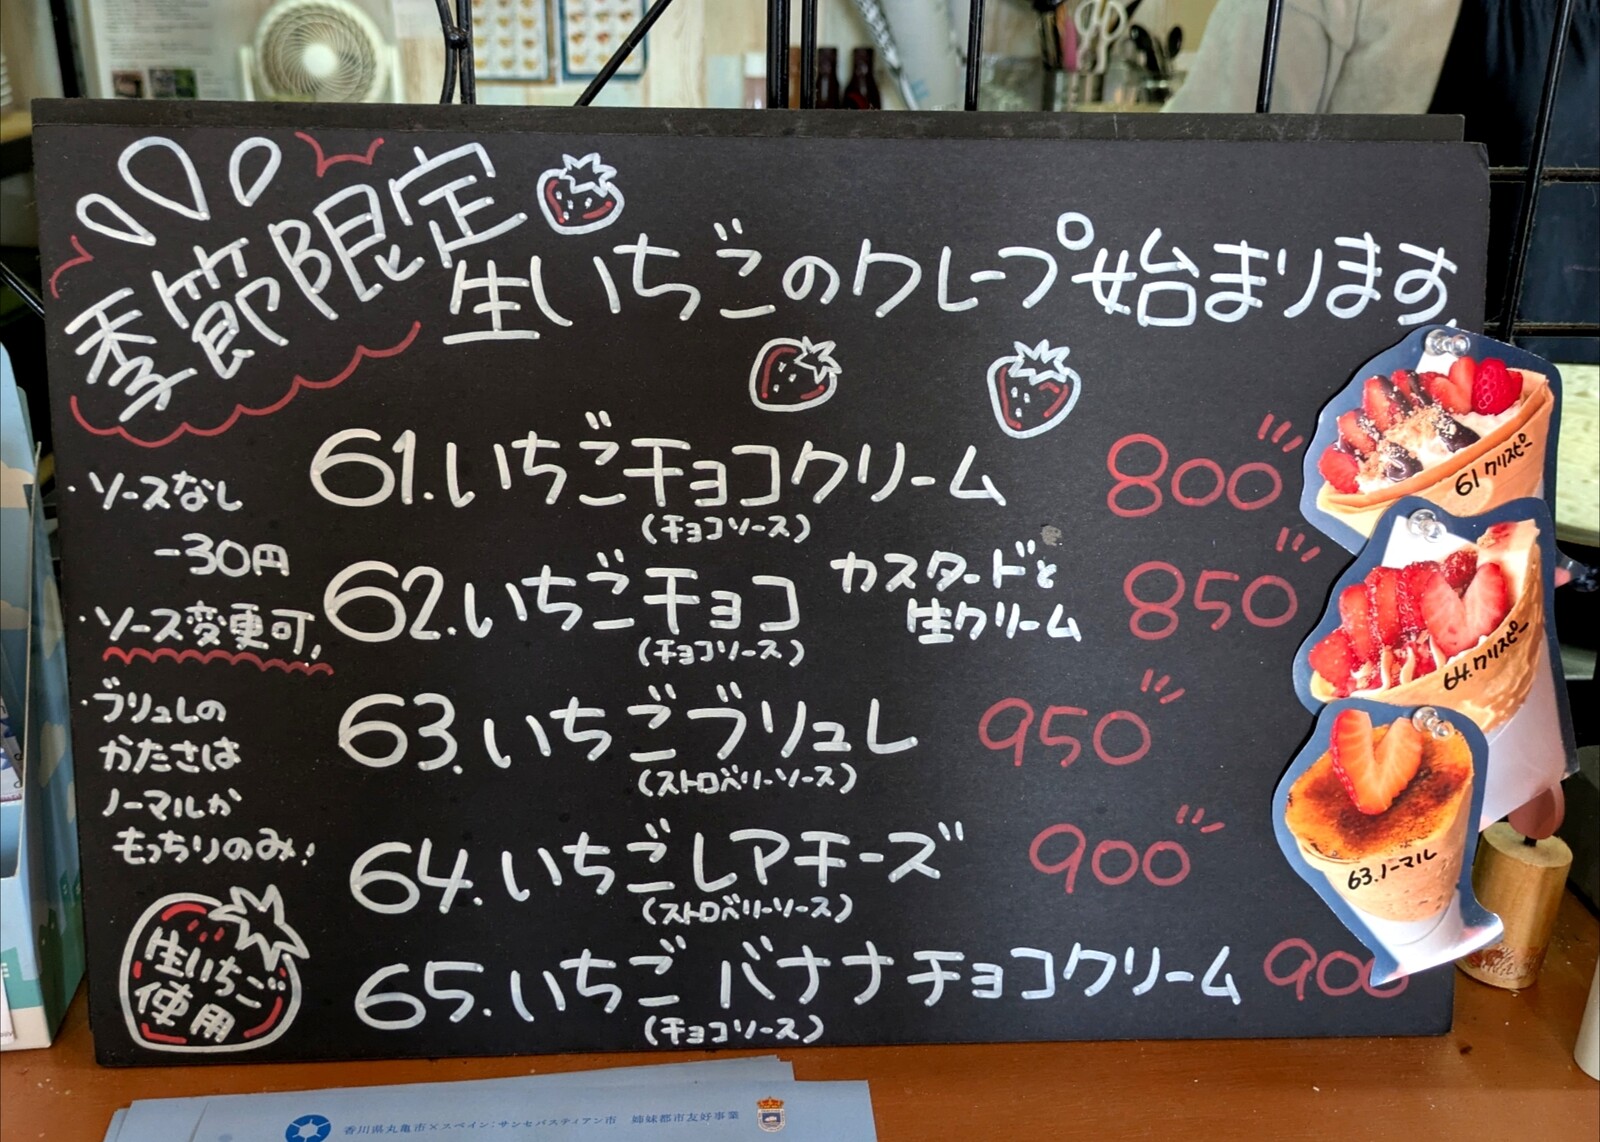 季節限定
生いちごのクレープ始まります。
61.いちごチョコクリーム 800
(チョコソース)
62.いちごチョコ カスタードと生クリーム 850
(チョコソース)
63.いちごブリュレ 950
(ストロベリーソース)
64.いちごレアチーズ 900
(ストロベリーソース)
65.いちごバナナチョコクリーム 900
(チョコソース)
・ソースなし
-30円
・ソース変更可。
・ブリュレの
かたさは
ノーマルか
もっちりのみ!
生いちご
使用
61 クリスピー
64.クリスピー
63.ノーマル
香川県丸亀市×スペイン:サンセバスティアン市 姉妹都市友好事業